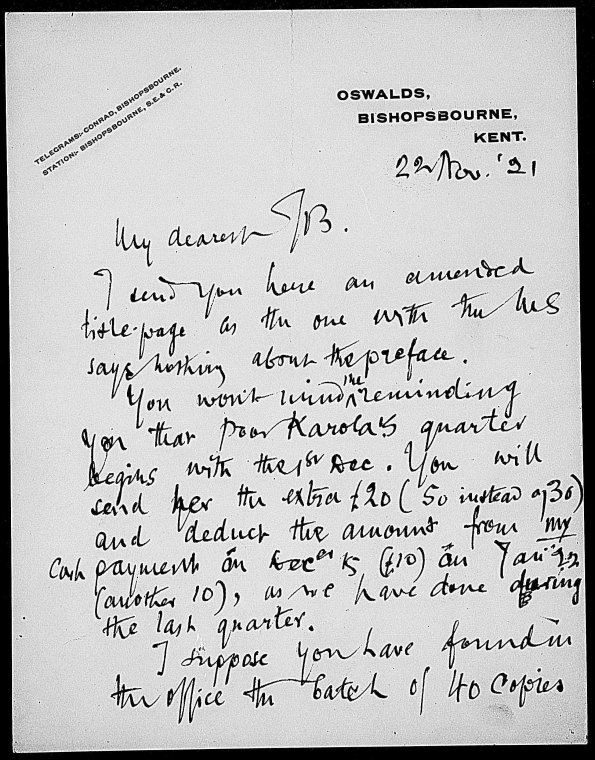 TELEGRAMS:- CONRAD, BISHOPSBOURNE.
STATION:- BISHOPSBOURNE, S.E. & C.R.
OSWALDS,
BISHOPSBOURNE,
KENT.
22 Nov. '21
My dearest JB.
I send you here an amended
title-page as the one with the MS
says nothing about the preface.
You won't mind me reminding
you that poor Karola's quarter
begins with the 1st Dec. You will
send her the extra £20 (50 instead of 30)
and deduct the amount from my
Cash payment on Dec 15 (£10) on Jan 22
(another 10), as we have done during
the last quarter.
I suppose you have found in
the office the batch of 40 copies